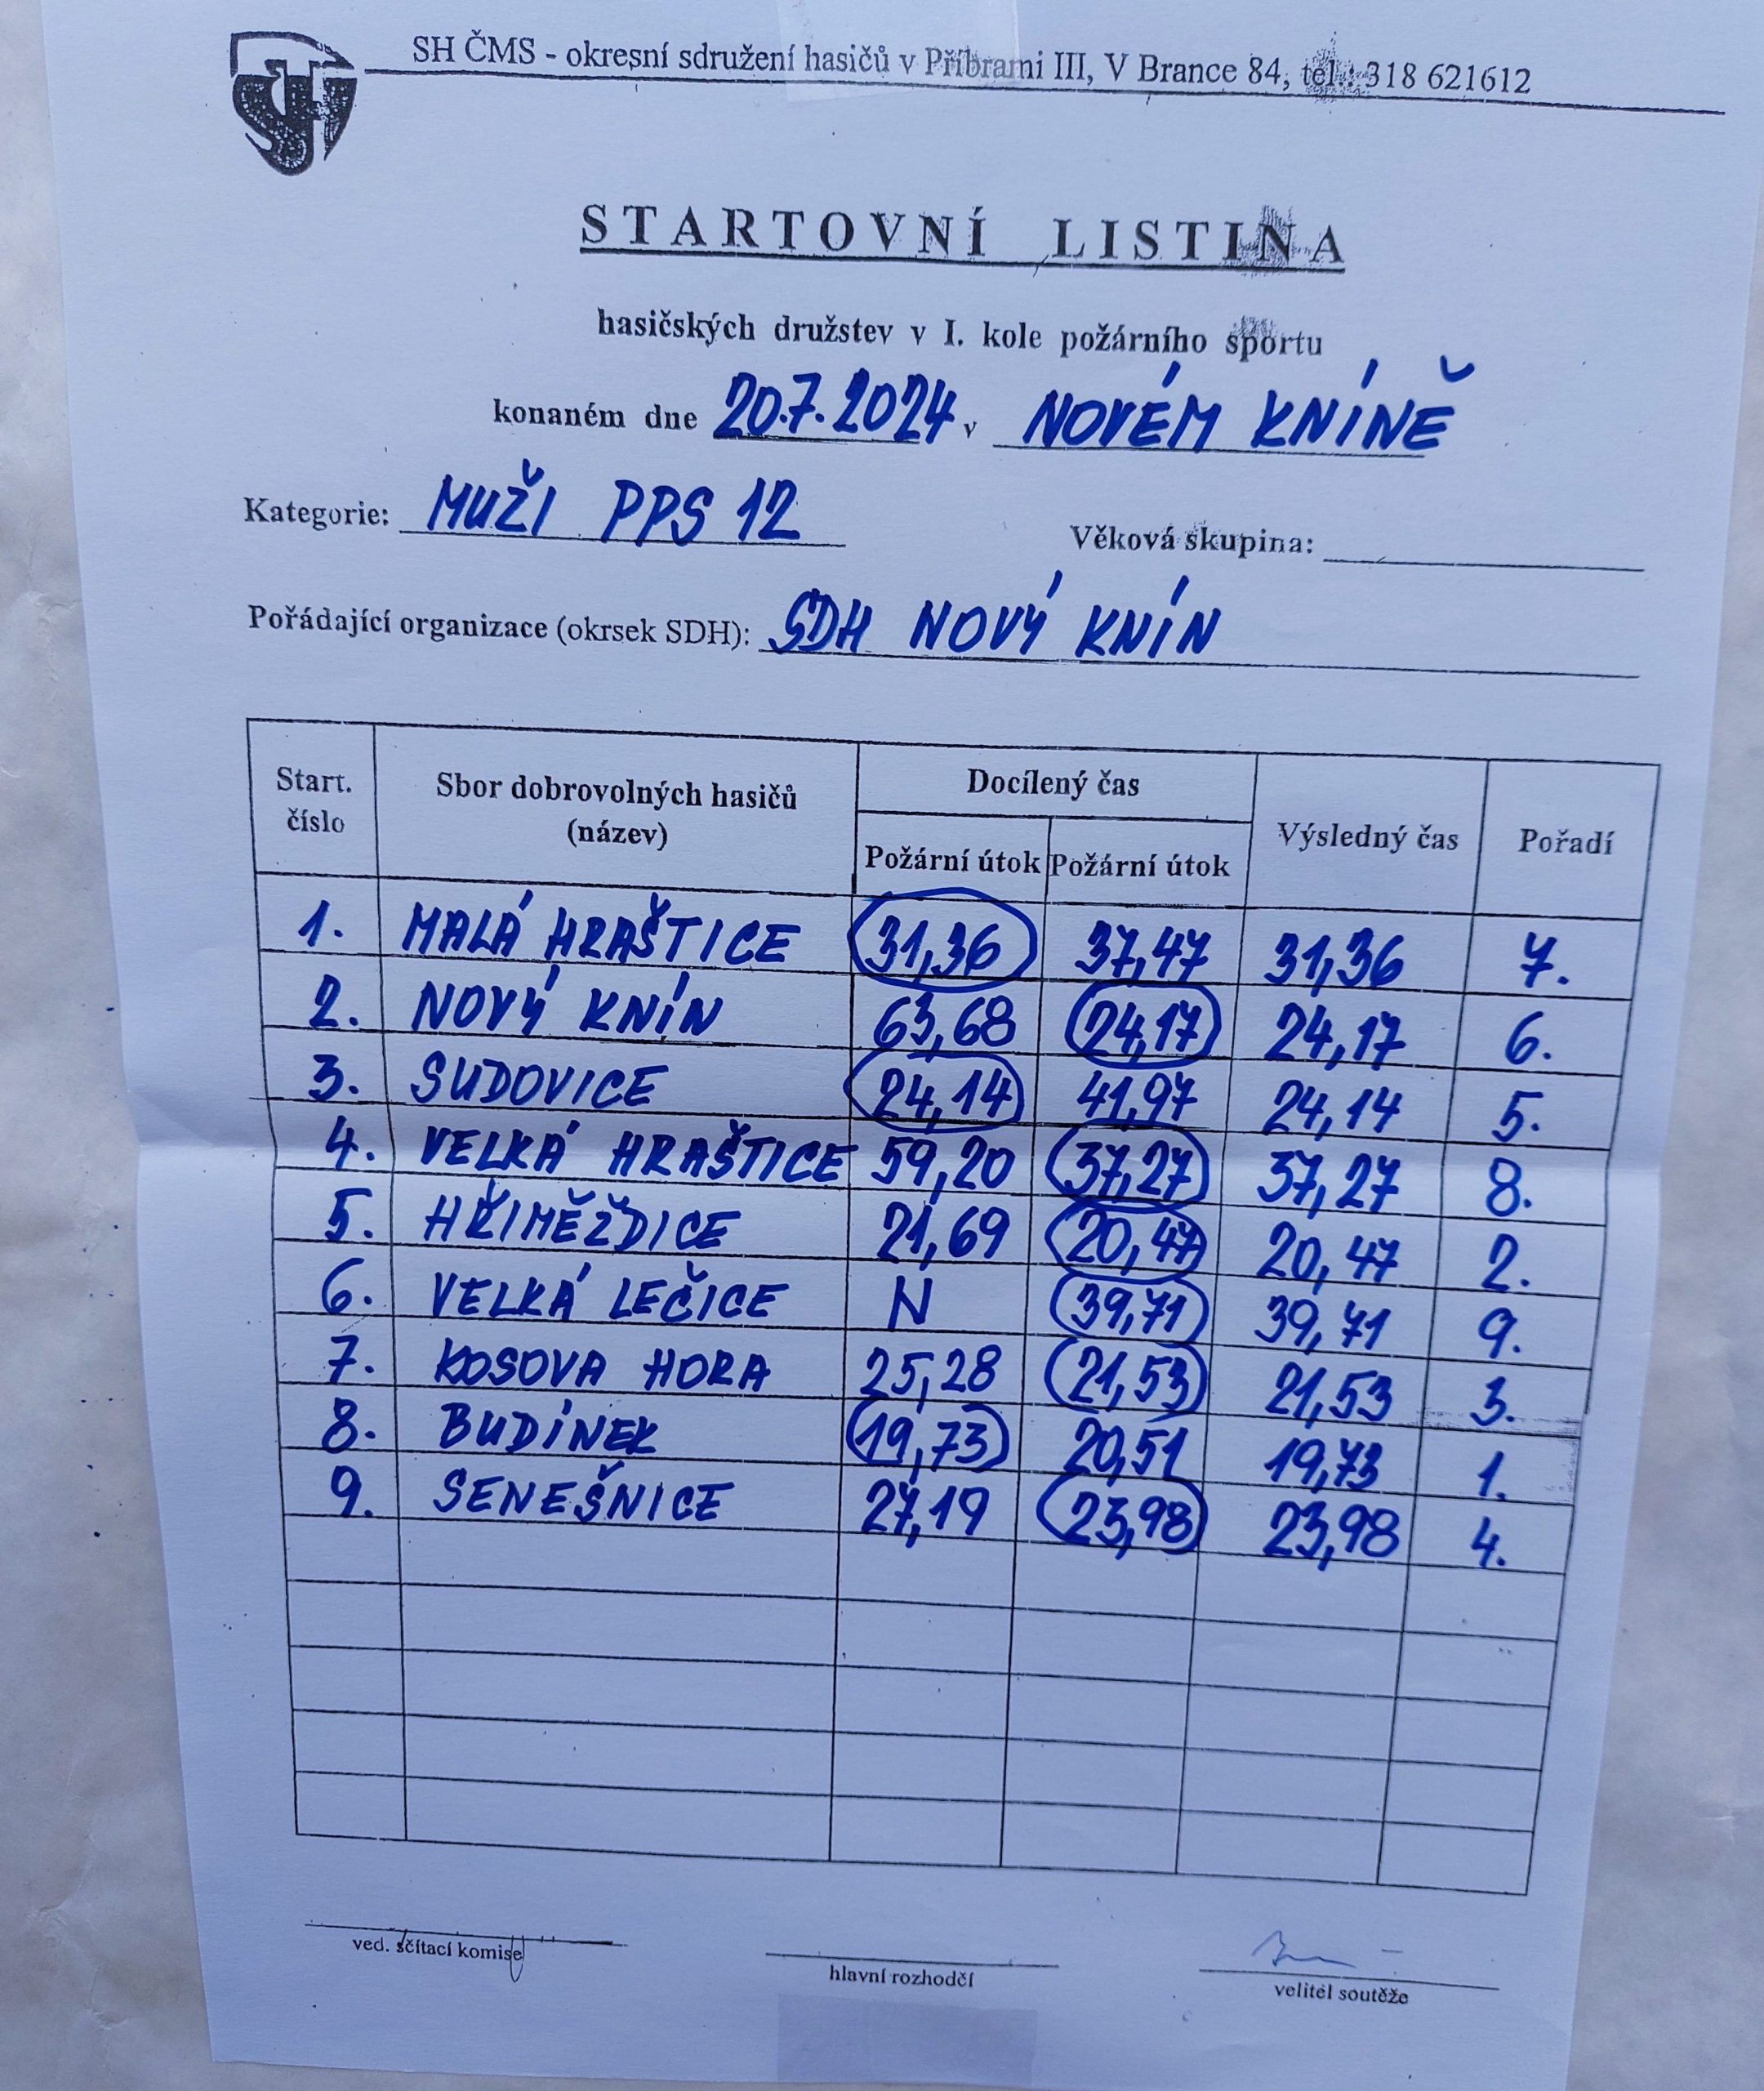 SH ČMS - okresní sdružení hasičů v Příbrami III, V Brance 84, tel.: 318 621612
STARTOVNÍ LISTINA
hasičských družstev v I. kole požárního sportu
konaném dne 20.7.2024 v NOVÉM KNÍNĚ
Kategorie: MUŽI PPS 12 Věková skupina:
Pořádající organizace (okrsek SDH): SDH NOVÝ KNÍN
Start. číslo Sbor dobrovolných hasičů (název) Docílený čas Výsledný čas Pořadí
Požární útok Požární útok
1. MALÁ HRAŠTICE 31,36 37,47 31,36 7.
2. NOVÝ KNÍN 63,68 24,17 24,17 6.
3. SUDOVICE 24,14 41,97 24,14 5.
4. VELKÁ HRAŠTICE 59,20 37,27 37,27 8.
5. HŘIMĚŽDICE 21,69 20,47 20,47 2.
6. VELKÁ LEČICE N 39,71 39,71 9.
7. KOSOVA HORA 25,28 21,53 21,53 3.
8. BUDÍNEK 19,73 20,51 19,73 1.
9. SENEŠNICE 27,19 23,98 23,98 4.
ved. sčítací komise hlavní rozhodčí velitel soutěže